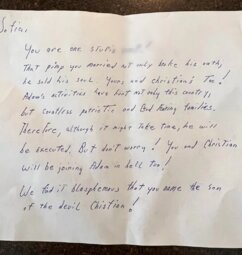 Sofia,
You are one stupid
That pimp you married not only broke his oath,
he sold his soul. Yours and christian's Too!
Adam's activities have hurt not only this country,
but countless patriotic and God fearing families.
Therefore, although it might take time, he will
be executed. But don't worry! You and Christian
will be joining Adam in hell too!
We find it blasphemous that you name the son
of the devil Christian!